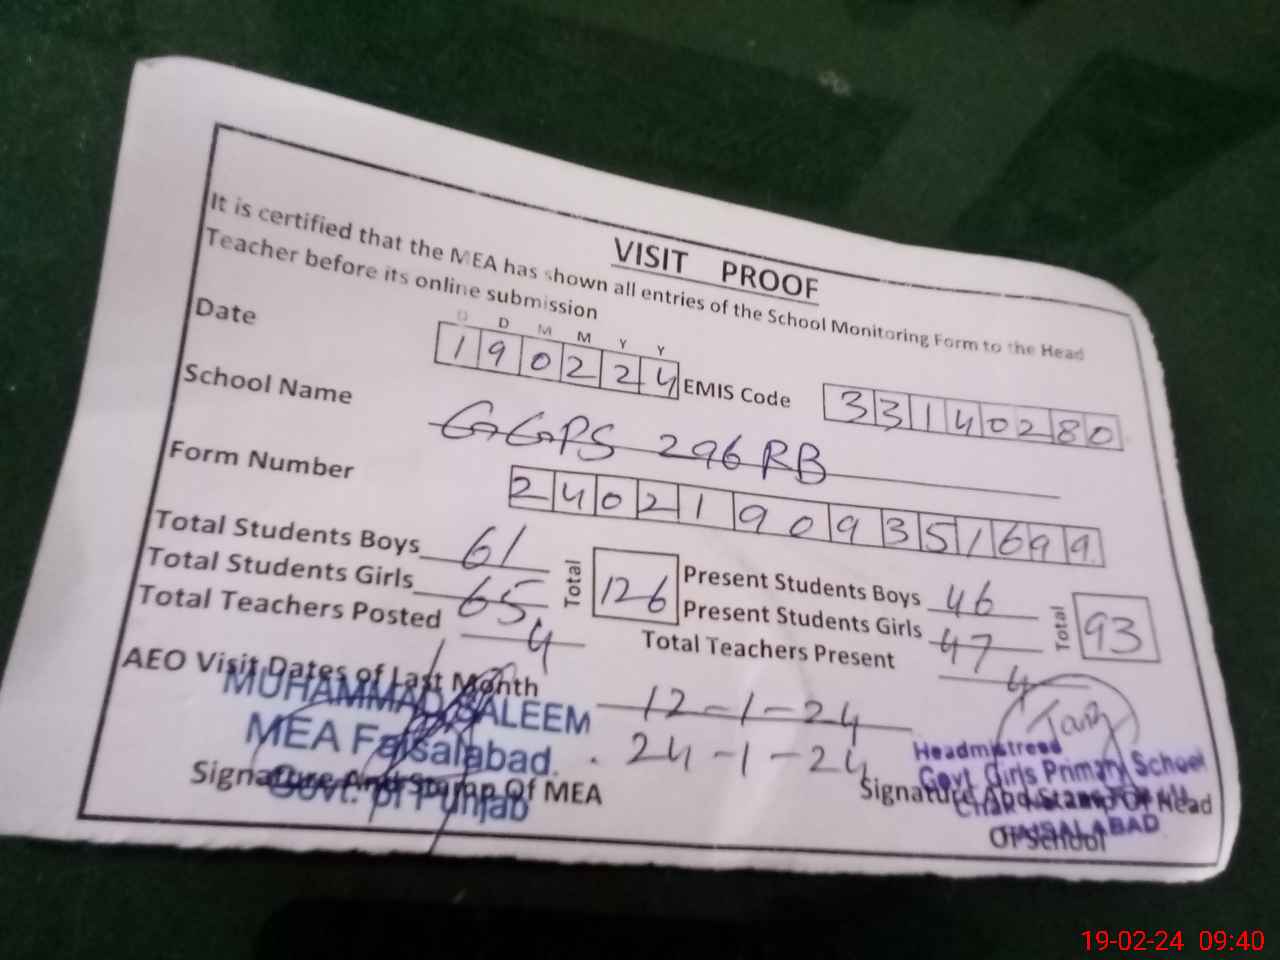 VISIT PROOF
It is certified that the MEA has shown all entries of the School Monitoring Form to the Head
Teacher before its online submission
D D M M Y Y
Date 190224 EMIS Code 33140280
School Name GGPS 296 RB
Form Number 24021909351699
Total Students Boys 61 Total 126 Present Students Boys 46 Total 93
Total Students Girls 65 Present Students Girls 47
Total Teachers Posted 4 Total Teachers Present 4
AEO Visit Dates of Last Month 12-1-24
24-1-24
MUHAMMAD SALEEM
MEA Faisalabad.
Govt. of Punjab
Signature And Stamp Of MEA
Headmistress
Govt. Girls Primary School
Chak
FAISALABAD
Signature And Stamp Of Head
Of School
19-02-24 09:40